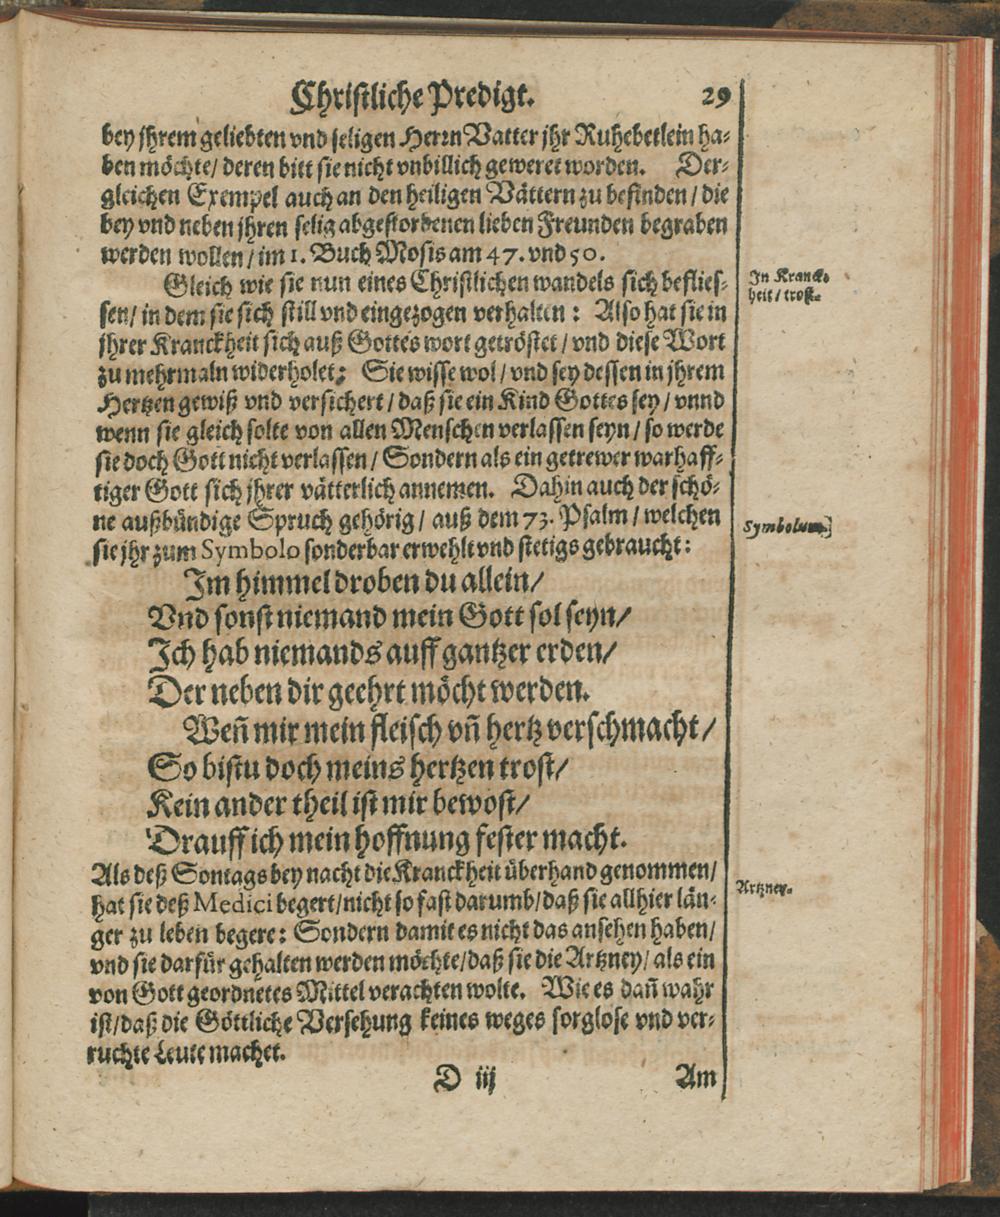 Christliche Predigt. 29
bey jhrem geliebten vnd seligen Herrn Vatter jhr Ruhebetlein ha-
ben möchte/ deren bitt sie nicht vnbillich geweret worden. Der-
gleichen Exempel auch an den heiligen Vättern zu befinden / die
bey vnd neben jhren selig abgestorbenen lieben Freunden begraben
werden wollen / im 1. Buch Mosis am 47. vnd 50.
Gleich wie sie nun eines Christlichen wandels sich beflies-
sen/ in dem sie sich still vnd eingezogen verhalten : Also hat sie in
jhrer Kranckheit sich auß Gottes wort getröstet / vnd diese Wort
zu mehrmaln widerholet: Sie wisse wol / vnd sey dessen in jhrem
Hertzen gewiß vnd versichert / daß sie ein Kind Gottes sey / vnnd
wenn sie gleich solte von allen Menschen verlassen seyn / so werde
sie doch Gott nicht verlassen / Sondern als ein getrewer warhaff-
tiger Gott sich jhrer vätterlich annemen. Dahin auch der schö-
ne außbündige Spruch gehörig / auß dem 73. Psalm / welchen
sie jhr zum Symbolo sonderbar erwehlt vnd stetigs gebraucht:
Im himmel droben du allein/
Vnd sonst niemand mein Gott sol seyn/
Ich hab niemands auff gantzer erden/
Der neben dir geehrt möcht werden.
Weñ mir mein fleisch vñ hertz verschmacht /
So bistu doch meins hertzen trost/
Kein ander theil ist mir bewost/
Drauff ich mein hoffnung fester macht.
Als deß Sontags bey nacht die Kranckheit überhand genommen/
hat sie deß Medici begert/nicht so fast darumb/daß sie allhier län-
ger zu leben begere: Sondern damit es nicht das ansehen haben/
vnd sie darfür gehalten werden möchte/daß sie die Artzney/ als ein
von Gott geordnetes Mittel verachten wolte. Wie es dañ wahr
ist/daß die Göttliche Versehung keines weges sorglose vnd ver-
ruchte Leute machet.
D iij Am
In Kranck-
heit / trost.
Symbolum.
Artzney.